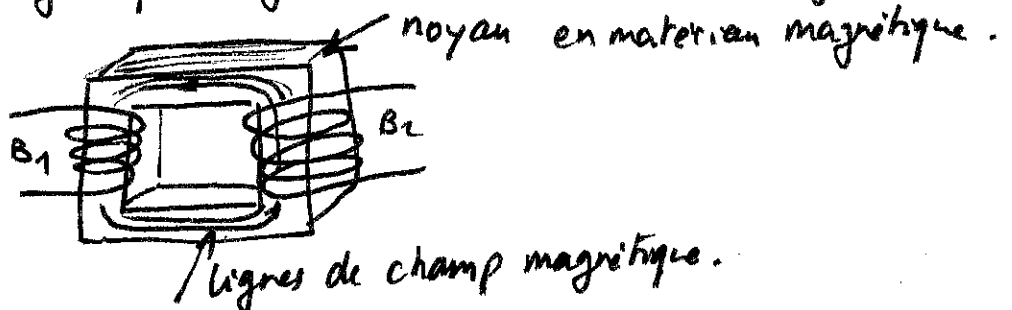 noyau en matériau magnétique.
B1
B2
lignes de champ magnétique.